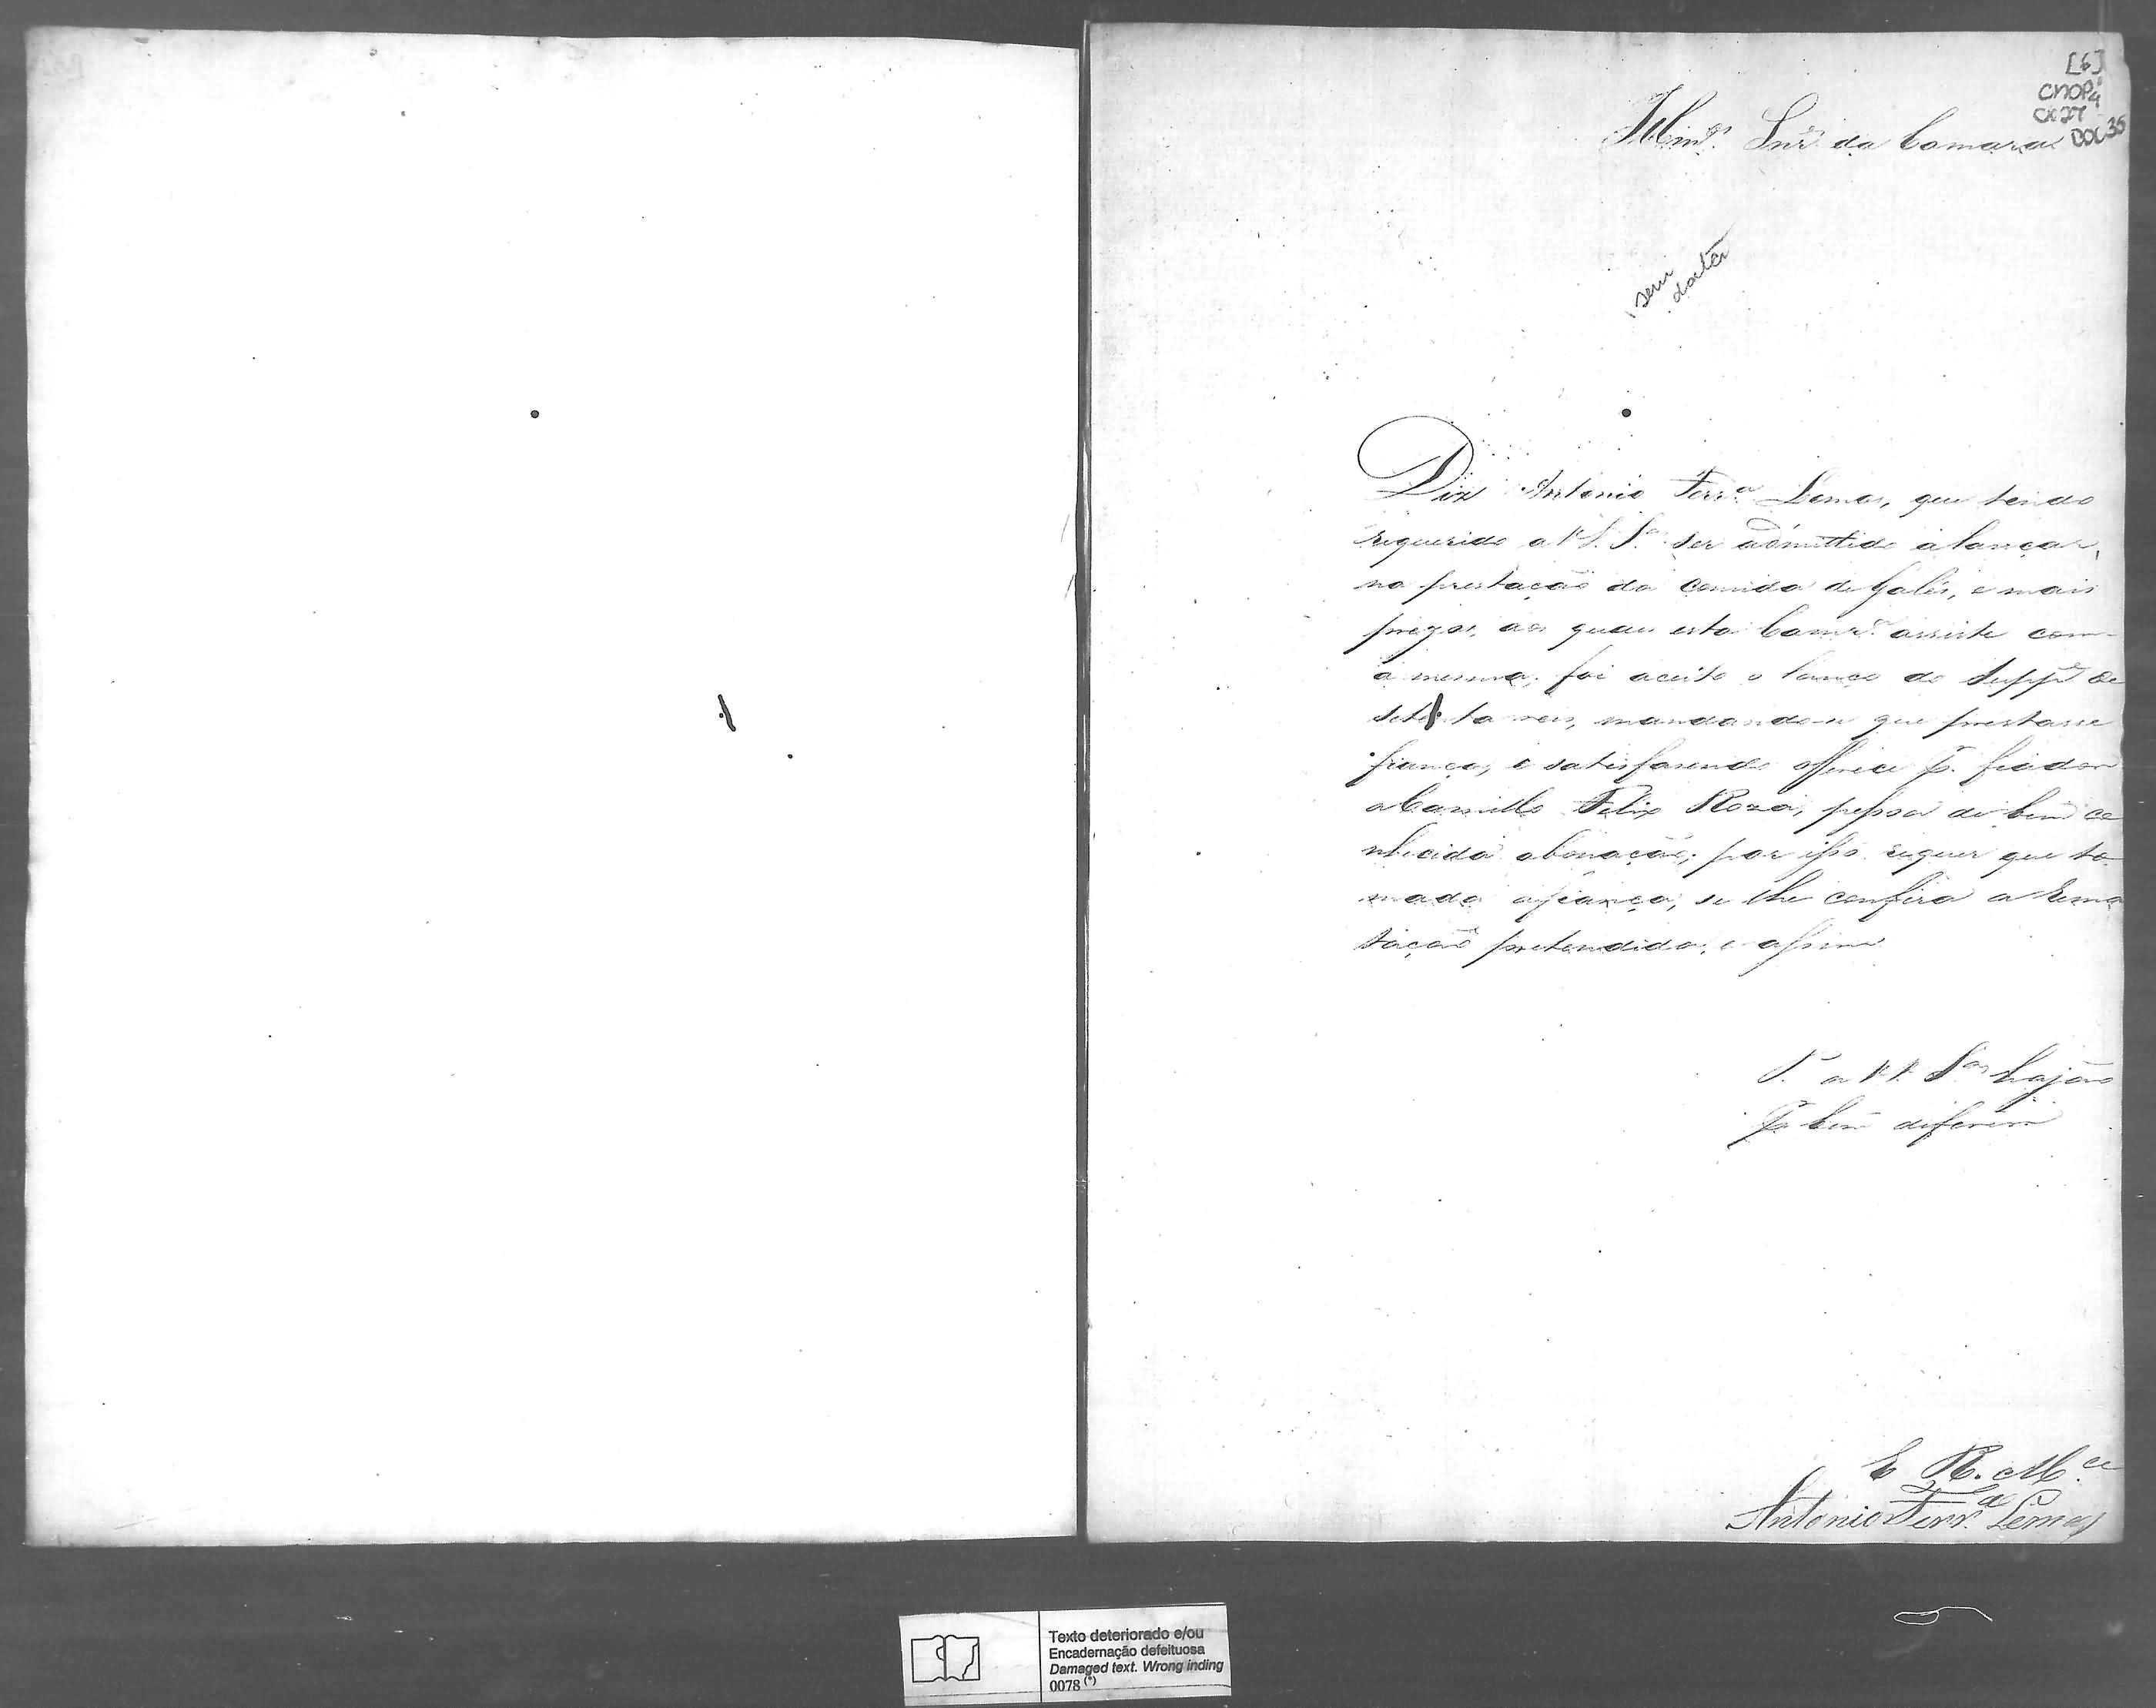 [6]
CMOP
CX 27
DOC 35
Illmos. Snres. da Camara
sem
data
Diz Antonio Ferra. Lemos, que tendo
requerido a VV. Sas. ser admittido a lançar,
na prestação da comida de Galés, e mais
prezos, aos quaes esta Camra. assiste com
a mesma; foi aceito o lanço do Suppe. de
setenta reis, mandando-se que prestasse
fiança, e satisfasendo offerece p. fiador
a Camillo Felix Roza, pessoa de bem co
nhecida abonação; por isso requer que to
mada a fiança, se lhe confira a Rema
tação pretendida, e assim
P. a VV. Sas. hajão
p. bem diferir
E R. Mce.
Antonio Ferra. Lemos
Texto deteriorado e/ou
Encadernação defeituosa
Damaged text. Wrong inding
0078 (*)